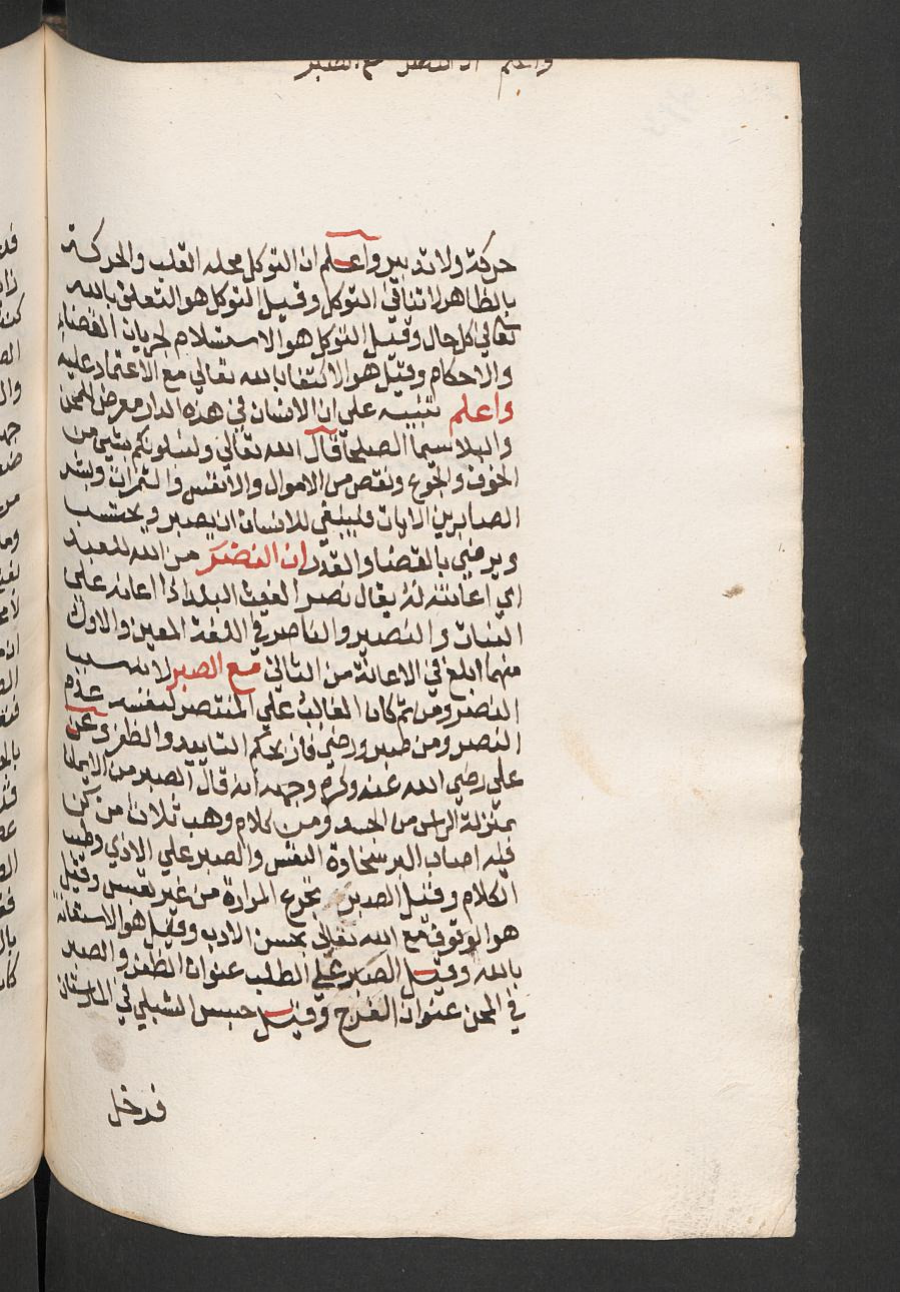 واعلم ان النصر مع الصبر
حركة ولا تدبير واعلم ان التوكل محله القلب والحركة
بالظاهر لا تنافي التوكل وقيل التوكل هو التعلق بالله
تعالى في كل حال وقيل التوكل هو الاستسلام لجريان القضاء
والاحكام وقيل هو الاكتفا بالله تعالي مع الاعتماد عليه
واعلم تنبيه على ان الانسان في هذه الدار معرض للمحن
والبلا سيما الصلحا قال الله تعالى ولنبلونكم بشي من
الخوف والجوع ونقص من الاموال والانفس والثمرات وبشر
الصابرين الايات فينبغي للانسان ان يصبر ويحتسب
ويرضي بالقضا والقدر ان النصر من الله للعبد
اي اعانته له يقال نصر الغيث البلد اذا اعانه علي
النبات والنصير والناصر في اللغة المعين والاول
منهما ابلغ في الاعانة من الثاني مع الصبر لانه سبب
النصر ومن ثم كان الغالب علي المنتصر لنفسه عدم
النصر ومن صبر ورضي فاز بحكم التاييد والظفر وعن
علي رضي الله عنه وكرم وجهه انه قال الصبر من الايمان
بمنزلة الراس من الجسد ومن كلام وهب ثلاث من كن
فيه اصاب البر سخاوة النفس والصبر علي الاذي وطيب
الكلام وقيل الصبر تجرع المرارة من غير تعبيس وقيل
هو الوقوف مع الله تعالى بحسن الادب وقيل هو الاستعانة
بالله وقيل الصبر علي الطلب عنوان الظفر والصبر
في المحن عنوان الفرج وقيل حبس الشبلي في المارستان
فدخل